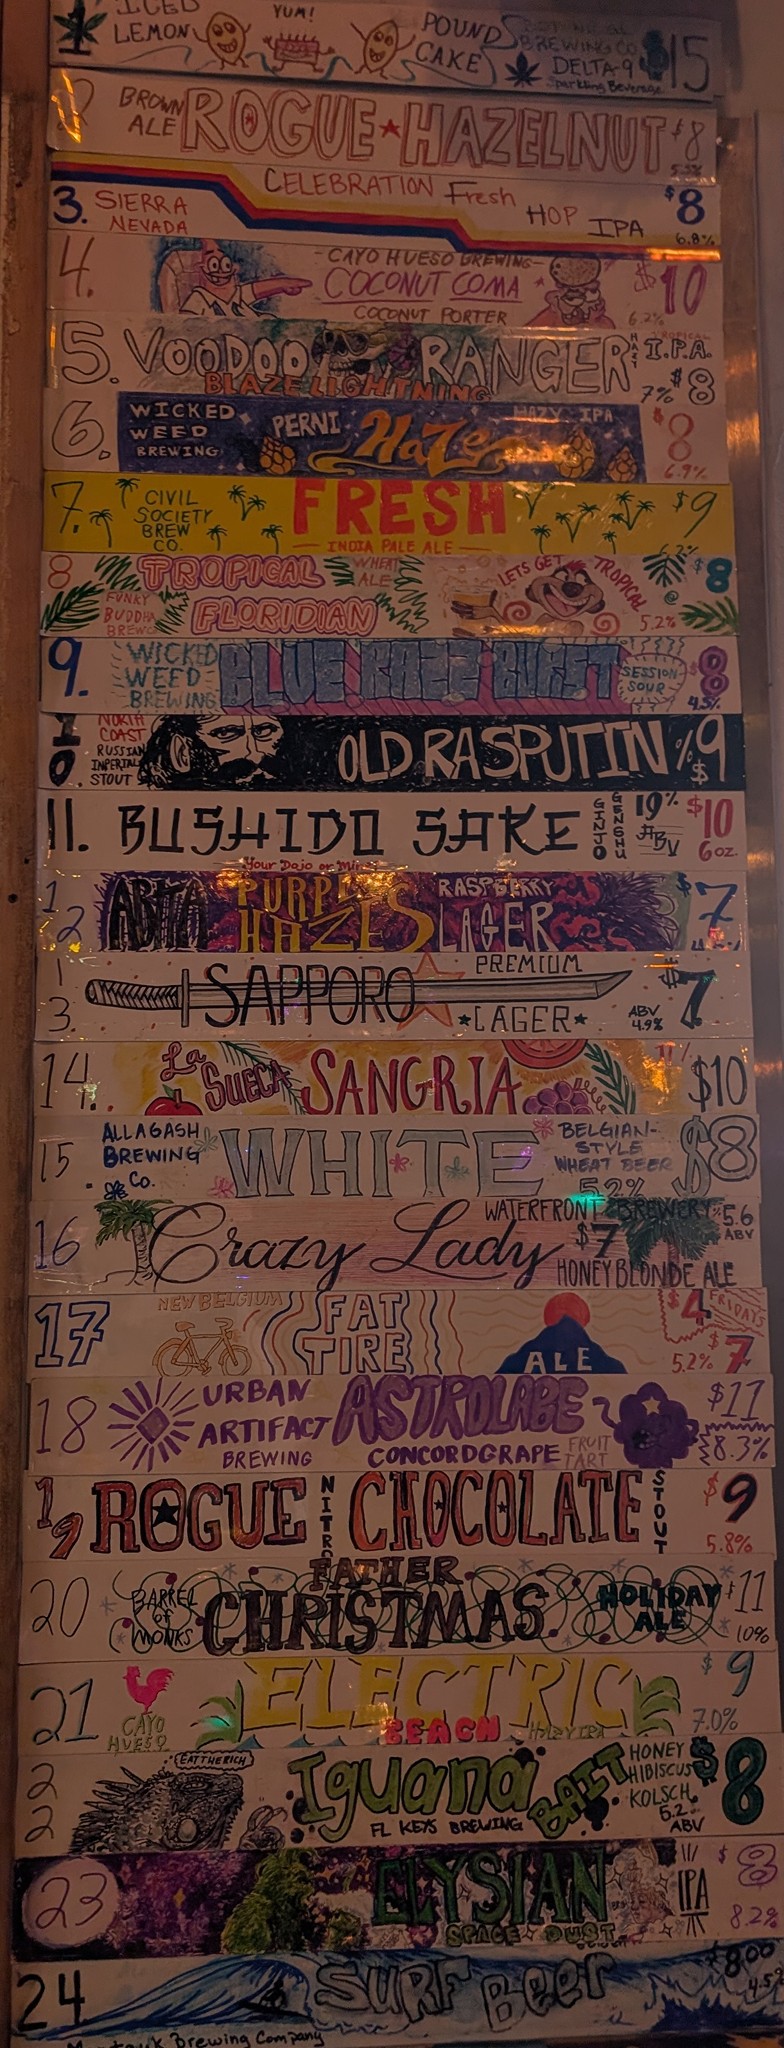 1
ICED
LEMON
YUM!
POUND
CAKE
BREWING CO.
DELTA-9
Sparkling Beverage
15
BROWN
ALE
ROGUE HAZELNUT
$8
5.5%
3. SIERRA
NEVADA
CELEBRATION Fresh
HOP IPA
$8
6.8%
4.
-CAYO HUESO BREWING-
COCONUT COMA
COCONUT PORTER
6.2%
$10
5. VOODOO RANGER
BLAZE LIGHTNING
HAZY
TROPICAL
I.P.A.
7% $8
6.
WICKED
WEED
BREWING
PERNI HaZe
HAZY IPA
$8
6.9%
7.
CIVIL
SOCIETY
BREW
CO.
FRESH
INDIA PALE ALE
$9
6.2%
8
FUNKY
BUDDHA
BREWC
TROPICAL
FLORIDIAN
WHEAT
ALE
LETS GET TROPICAL
$8
5.2%
9.
WICKED
WEED
BREWING
BLUE RAZZ BURST
SESSION
SOUR
$8
4.5%
10.
NORTH
COAST
RUSSIAN
IMPERIAL
STOUT
OLD RASPUTIN
% $9
11. BUSHIDO SAKE
Your Dojo or Mine
GINJO
GENSHU
19%
ABV
$10
6oz.
12
ABITA
PURPLE
HAZE
RASPBERRY
LAGER
$7
13.
SAPPORO
PREMIUM
LAGER
ABV
4.9%
$7
14.
La
SUECA
SANGRIA
11%
$10
15.
ALLAGASH
BREWING
Co.
WHITE
BELGIAN-
STYLE
WHEAT BEER
5.2%
$8
16
Crazy Lady
WATERFRONT BREWERY
$7
HONEY BLONDE ALE
% 5.6
ABV
17
NEW BELGIUM
FAT
TIRE
ALE
$4 FRIDAYS
5.2% $7
18
URBAN
ARTIFACT
BREWING
ASTROLABE
CONCORDGRAPE
FRUIT
TART
$11
8.3%
19
ROGUE
NITRO
CHOCOLATE
STOUT
$9
5.8%
20
BARREL
of
MONKS
FATHER
CHRISTMAS
HOLIDAY
ALE
$11
10%
21
CAYO
HUESO
ELECTRIC
BEACH
HAZY IPA
$9
7.0%
22
EAT THE RICH
Iguana BAIT
FL KEYS BREWING
HONEY
HIBISCUS
KOLSCH
5.2
ABV
$8
23
ELYSIAN
SPACE DUST
IPA
$8
8.2%
24
SURF Beer
$8.00
4.5%
Montauk Brewing Company